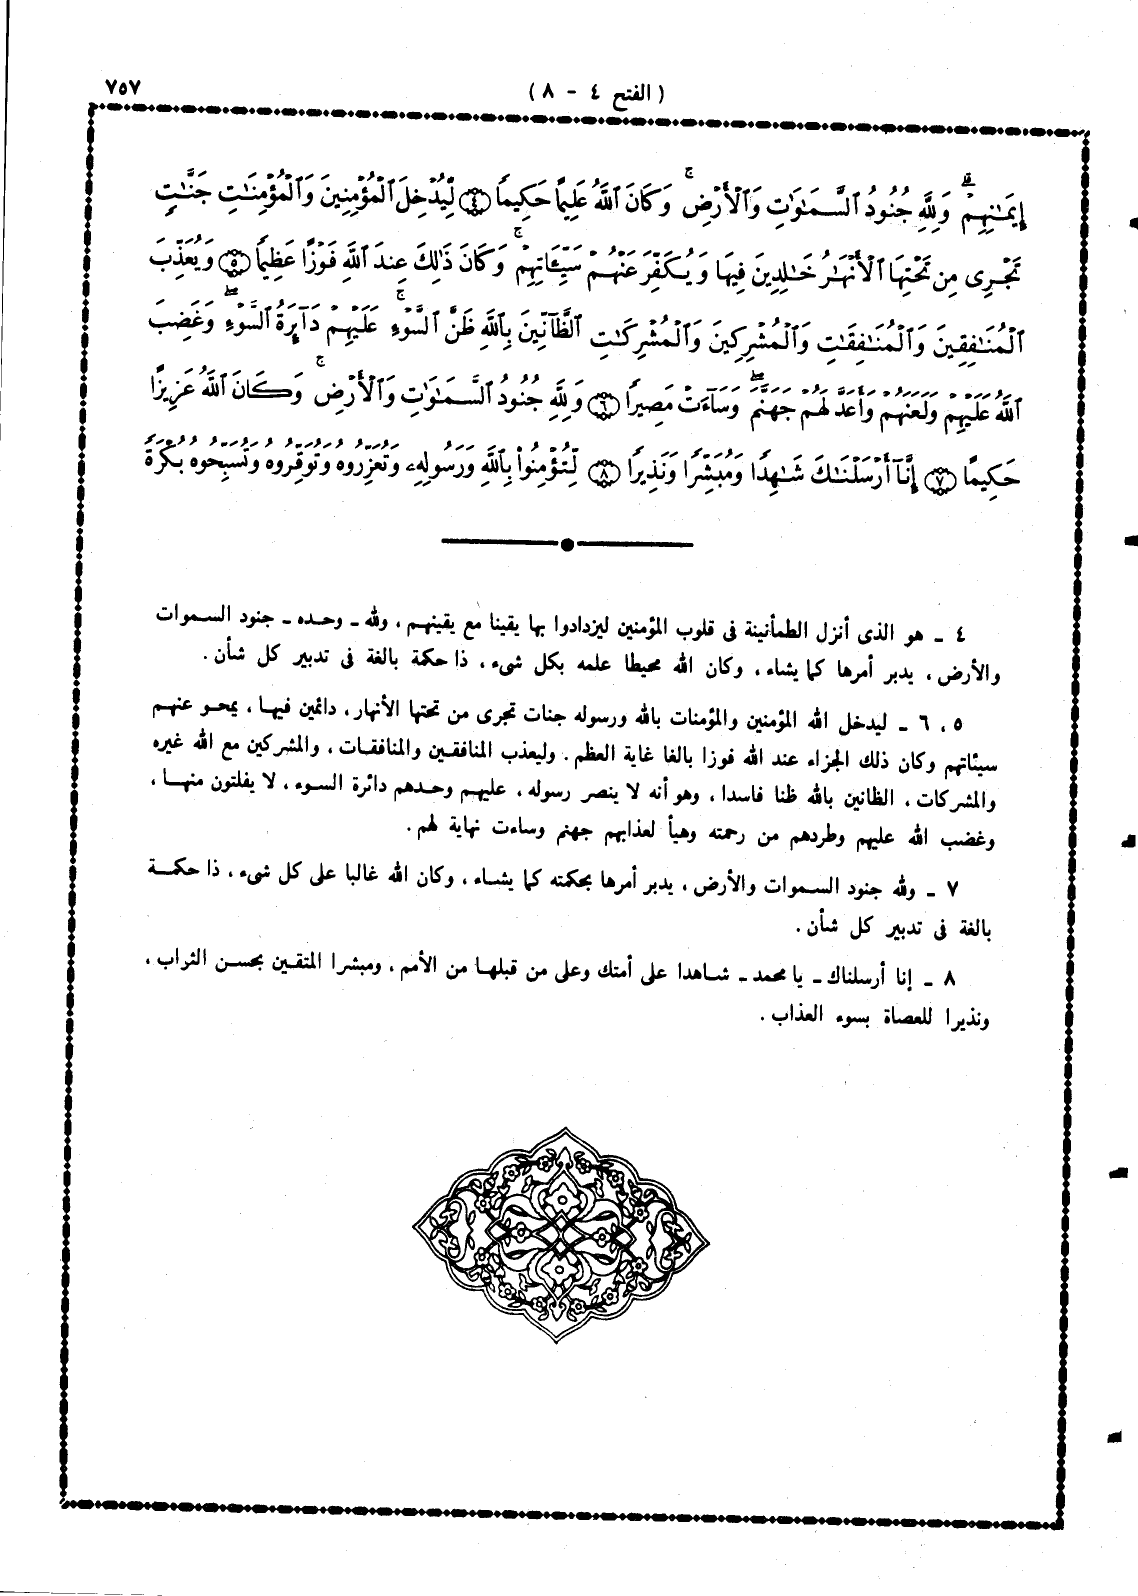 ٧٥٧
( الفتح ٤ - ٨ )
إِيمَـٰنِهِمْ ۗ وَلِلَّهِ جُنُودُ ٱلسَّمَـٰوَٰتِ وَٱلْأَرْضِ ۚ وَكَانَ ٱللَّهُ عَلِيمًا حَكِيمًا ﴿٤﴾ لِّيُدْخِلَ ٱلْمُؤْمِنِينَ وَٱلْمُؤْمِنَـٰتِ جَنَّـٰتٍ
تَجْرِى مِن تَحْتِهَا ٱلْأَنْهَـٰرُ خَـٰلِدِينَ فِيهَا وَيُكَفِّرَ عَنْهُمْ سَيِّـَٔاتِهِمْ ۚ وَكَانَ ذَٰلِكَ عِندَ ٱللَّهِ فَوْزًا عَظِيمًا ﴿٥﴾ وَيُعَذِّبَ
ٱلْمُنَـٰفِقِينَ وَٱلْمُنَـٰفِقَـٰتِ وَٱلْمُشْرِكِينَ وَٱلْمُشْرِكَـٰتِ ٱلظَّآنِّينَ بِٱللَّهِ ظَنَّ ٱلسَّوْءِ ۚ عَلَيْهِمْ دَآئِرَةُ ٱلسَّوْءِ ۖ وَغَضِبَ
ٱللَّهُ عَلَيْهِمْ وَلَعَنَهُمْ وَأَعَدَّ لَهُمْ جَهَنَّمَ ۖ وَسَآءَتْ مَصِيرًا ﴿٦﴾ وَلِلَّهِ جُنُودُ ٱلسَّمَـٰوَٰتِ وَٱلْأَرْضِ ۚ وَكَانَ ٱللَّهُ عَزِيزًا
حَكِيمًا ﴿٧﴾ إِنَّآ أَرْسَلْنَـٰكَ شَـٰهِدًا وَمُبَشِّرًا وَنَذِيرًا ﴿٨﴾ لِّتُؤْمِنُوا۟ بِٱللَّهِ وَرَسُولِهِۦ وَتُعَزِّرُوهُ وَتُوَقِّرُوهُ وَتُسَبِّحُوهُ بُكْرَةً
٤ ـ هو الذى أنزل الطمأنينة فى قلوب المؤمنين ليزدادوا بها يقينا مع يقينهم ، ولله ـ وحده ـ جنود السموات
والأرض ، يدبر أمرها كما يشاء ، وكان الله محيطا علمه بكل شىء ، ذا حكمة بالغة فى تدبير كل شأن .
٥ ، ٦ ـ ليدخل الله المؤمنين والمؤمنات بالله ورسوله جنات تجرى من تحتها الأنهار ، دائمين فيها ، يمحو عنهم
سيئاتهم وكان ذلك الجزاء عند الله فوزا بالغا غاية العظم . وليعذب المنافقين والمنافقات ، والمشركين مع الله غيره
والمشركات ، الظانين بالله ظنا فاسدا ، وهو أنه لا ينصر رسوله ، عليهم وحدهم دائرة السوء ، لا يفلتون منها ،
وغضب الله عليهم وطردهم من رحمته وهيأ لعذابهم جهنم وساءت نهاية لهم .
٧ ـ ولله جنود السموات والأرض ، يدبر أمرها بحكمته كما يشاء ، وكان الله غالبا على كل شىء ، ذا حكمة
بالغة فى تدبير كل شأن .
٨ ـ إنا أرسلناك ـ يا محمد ـ شاهدا على أمتك وعلى من قبلها من الأمم ، ومبشرا المتقين بحسن الثراب ،
ونذيرا للعصاة بسوء العذاب .